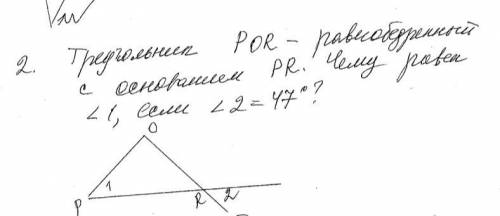 2. Треугольник POR – равнобедренный
с основанием PR. Чему равен
∠1, если ∠2 = 47°?
O
1
P
R
2